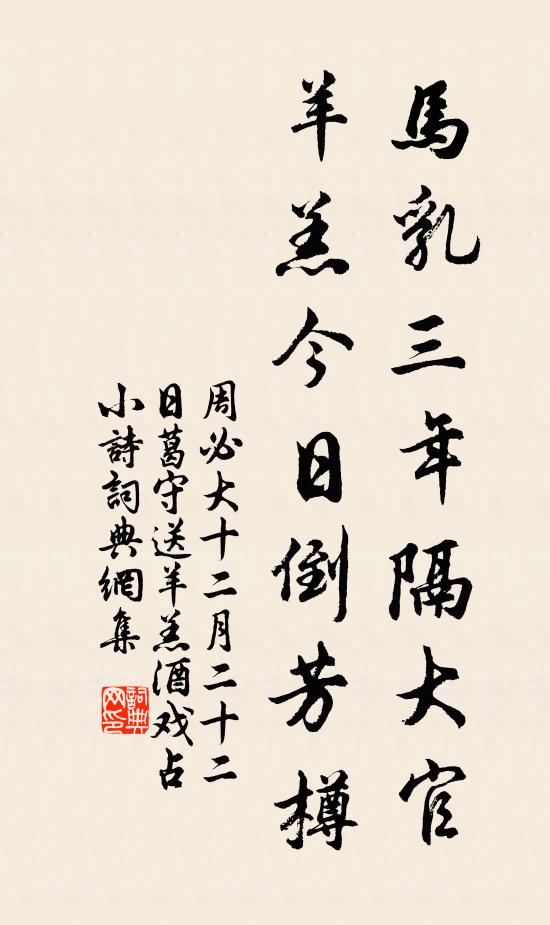 馬乳三年隔大官
羊羔今日倒芳樽
周必大十二月二十二
日葛守送羊羔酒戏占
小詩詞典網集
詞典
网印